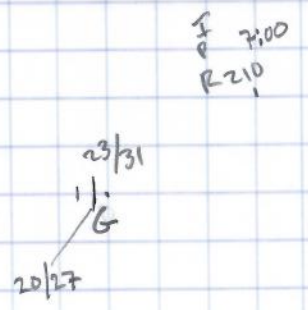 7:00
R 210
23/31
G
20/27